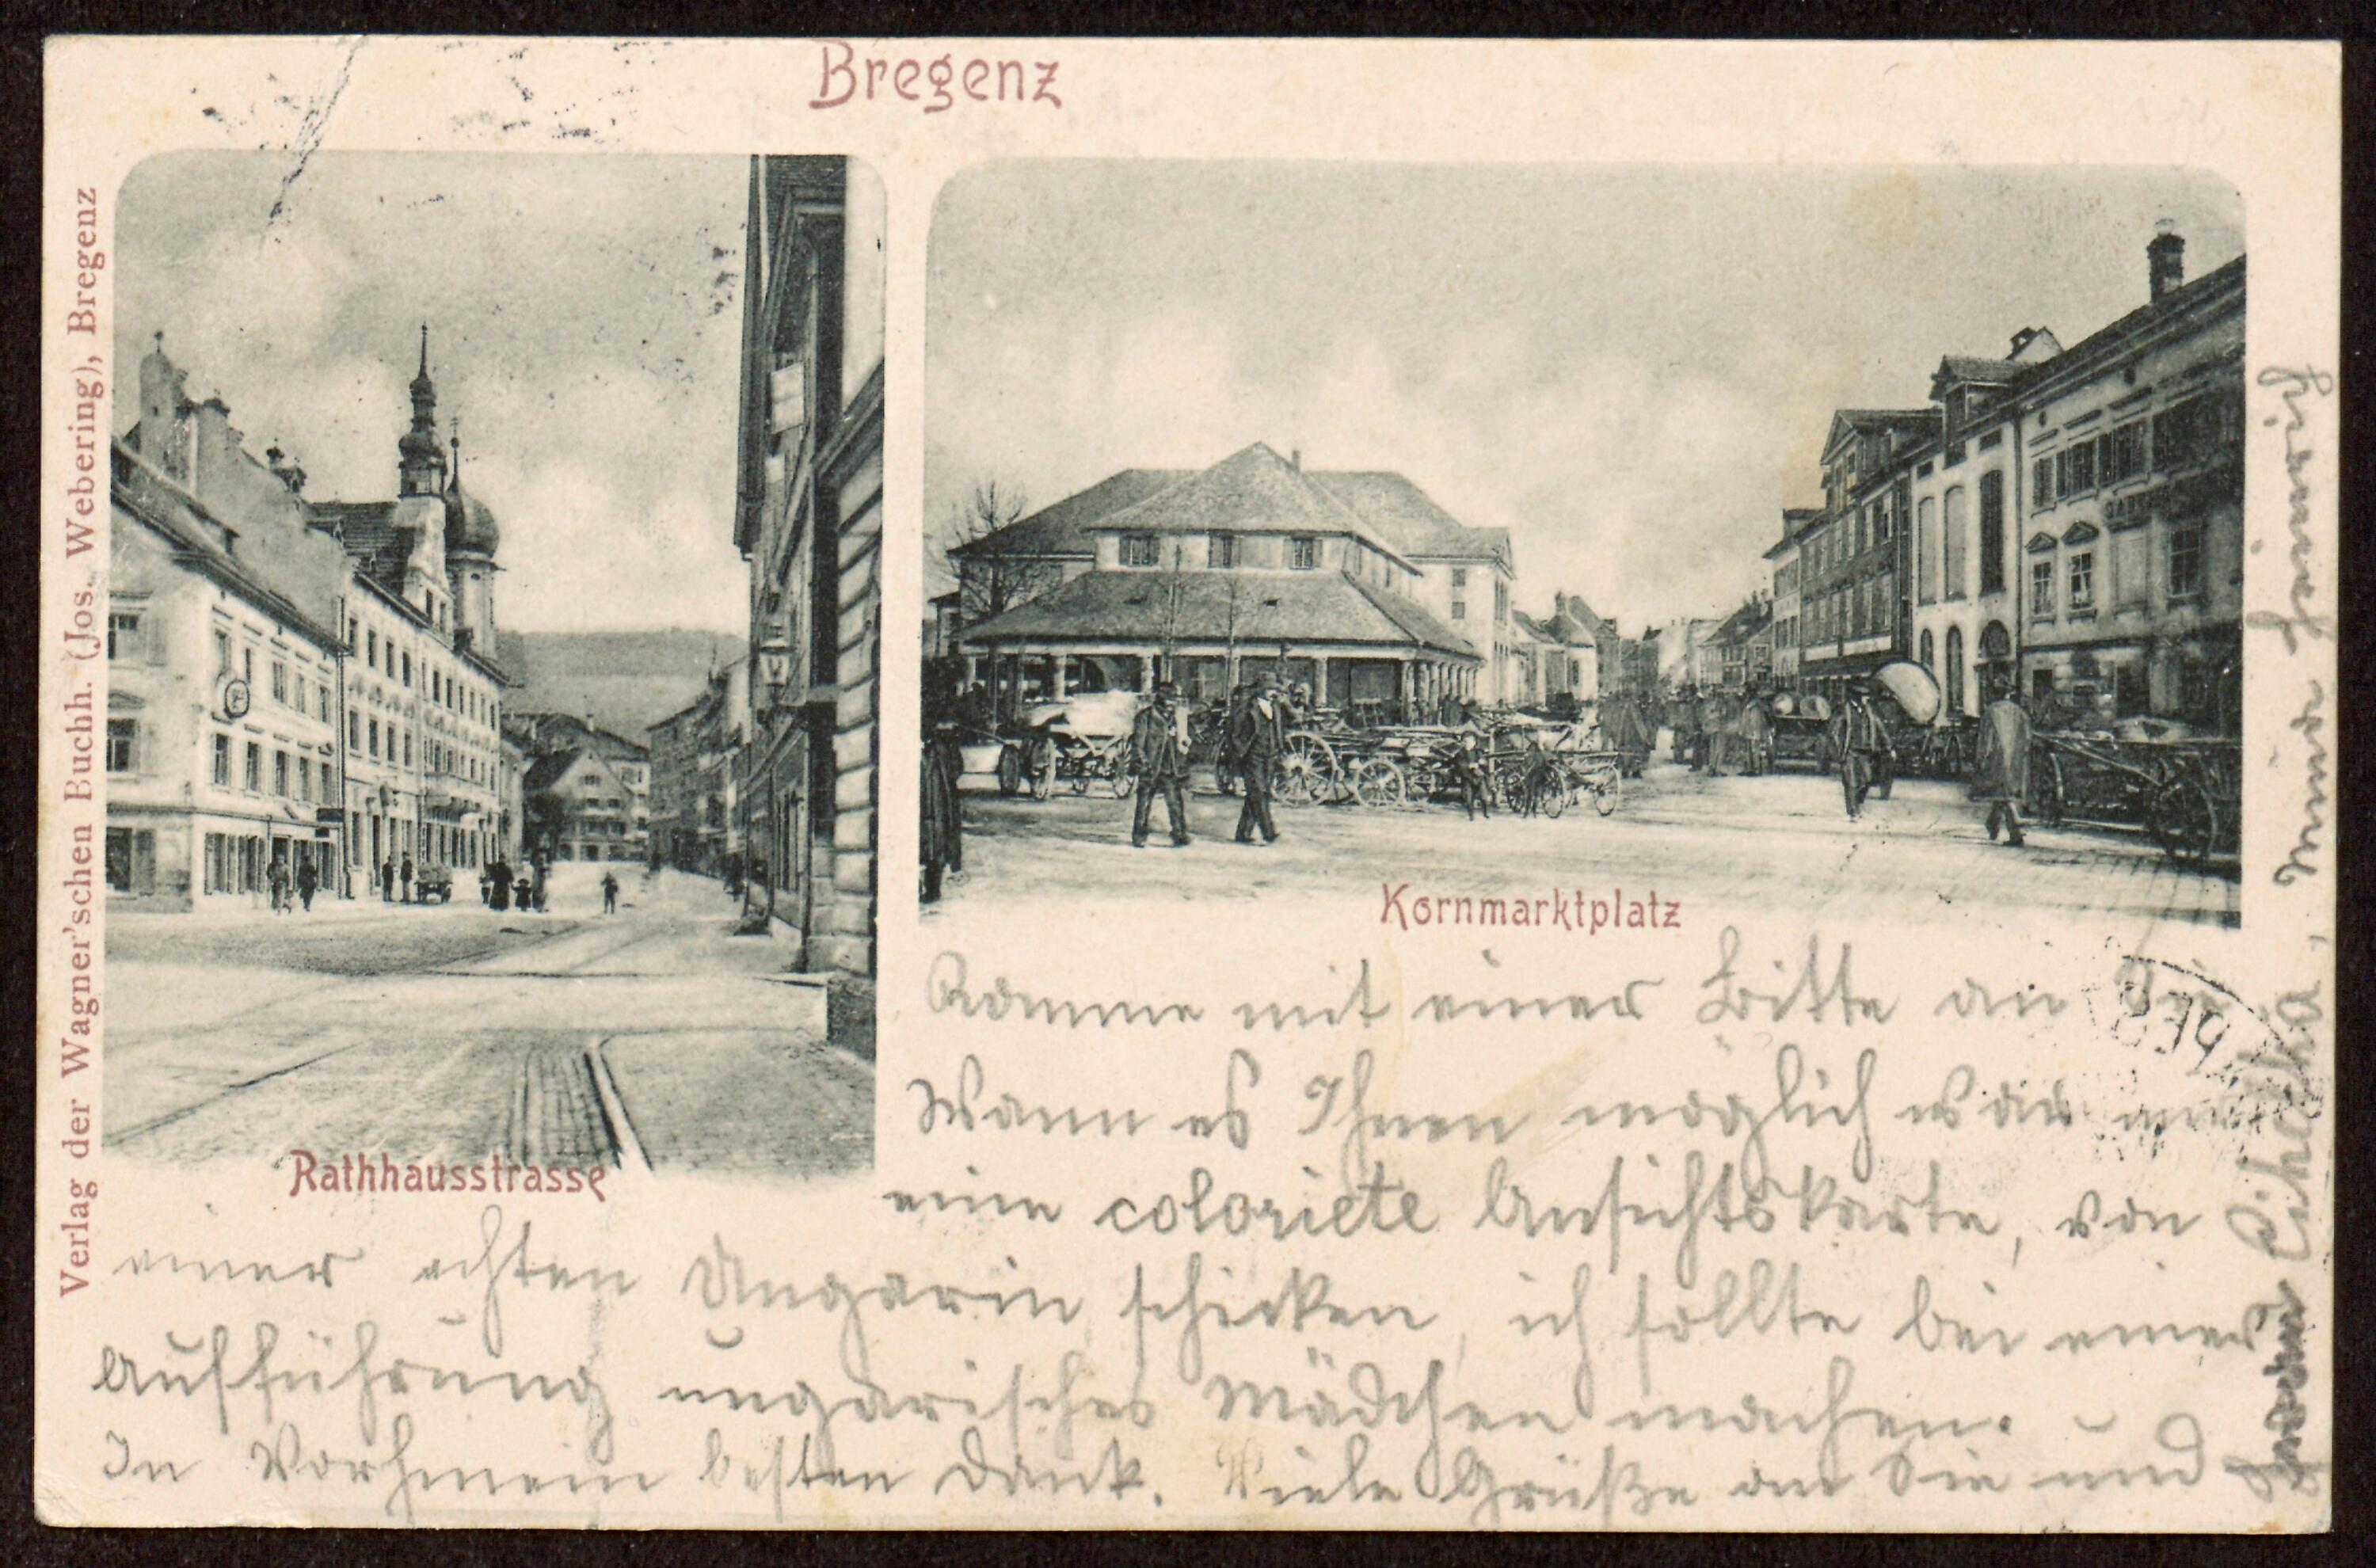 Bregenz
Verlag der Wagner'schen Buchh. (Jos. Webering), Bregenz
Rathhausstrasse
Kornmarktplatz
Komme mit einer Bitte an Sie
Wann es Ihnen möglich wär mir
eine coloriete Ansichtskarte, von
einer echten Ungarin schicken, ich sollte bei einer
Aufführung ungarisches Mädchen machen.
In Vorhinein besten Dank. Viele Grüße an Sie und